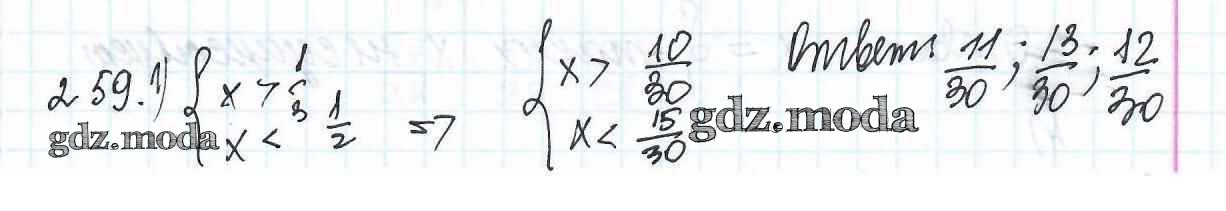 259.1) { x > 1/3 x < 1/2 => { x > 10/30 x < 15/30 Ответ: 11/30; 13/30; 12/30
gdz.moda
gdz.moda